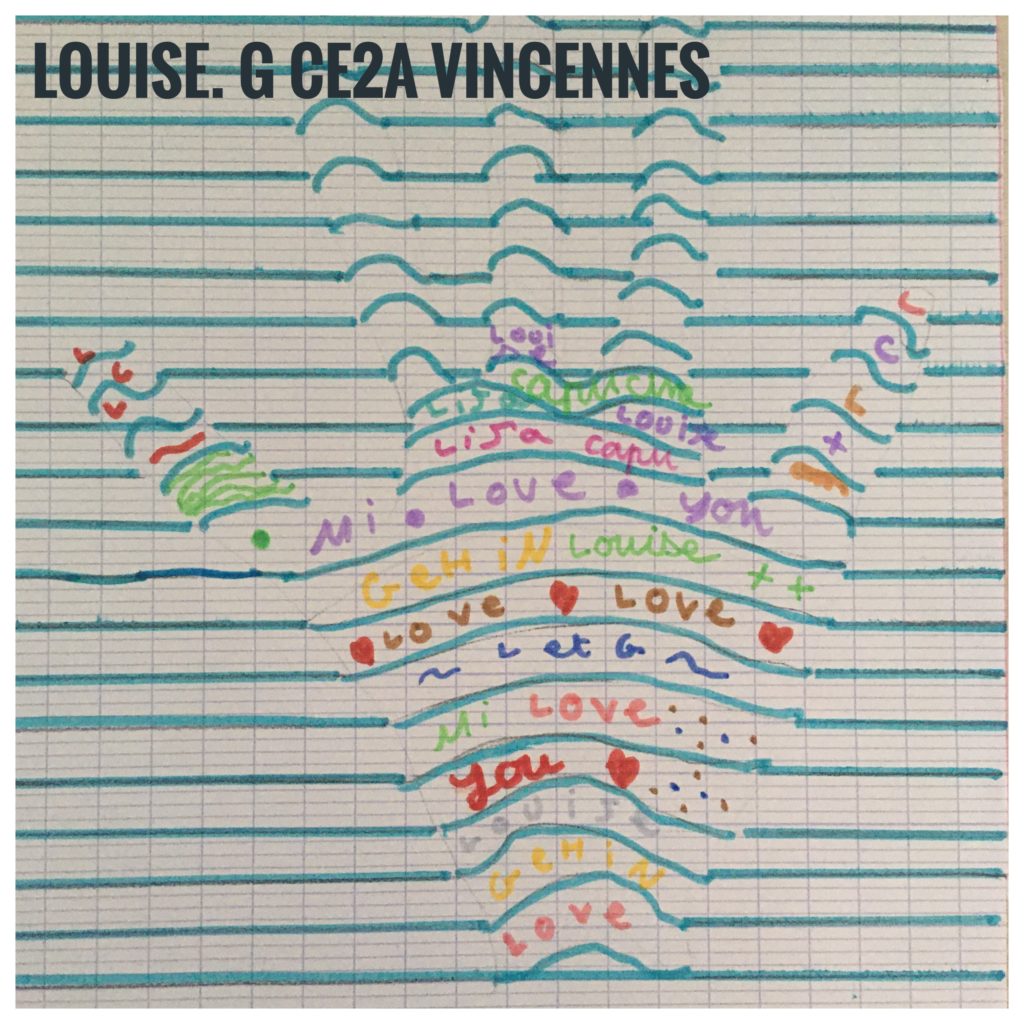 LOUISE. G CE2A VINCENNES
Loui
capucine
Lisa
Louise
Lisa capu
Mi • LOVE • You
GeHiN Louise ++
LOVE ♥ LOVE ♥
~ L et G ~
Mi LOVE
You ♥
LOUISE
GeHiN
LOVE